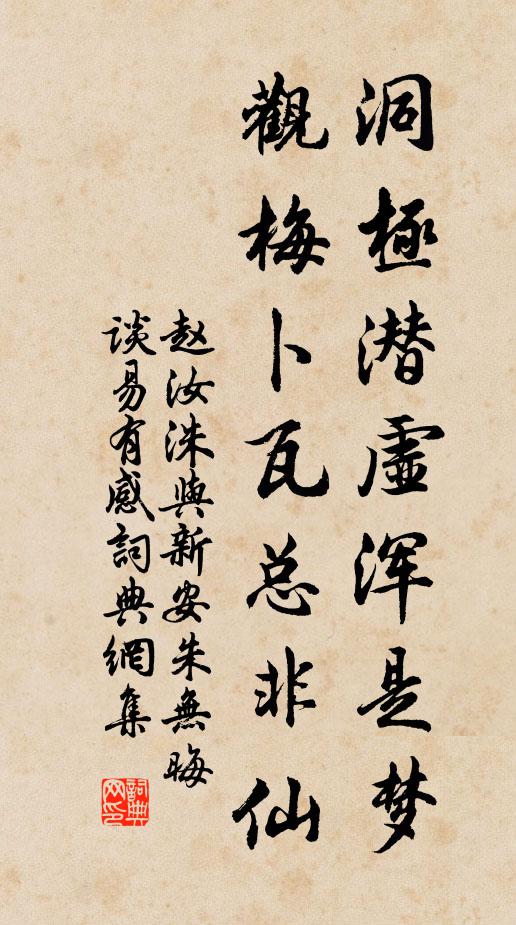 洞極潜虛浑是梦
觀梅卜瓦总非仙
赵汝洙與新安朱無晦
谈易有感詞典網集
詞典网印